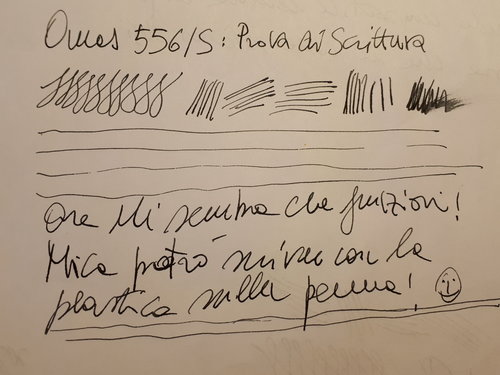 Omas 556/S: Prova di Scrittura
Ora Mi sembra che funzioni!
Mica potrò scrivere con la
plastica sulla penna!